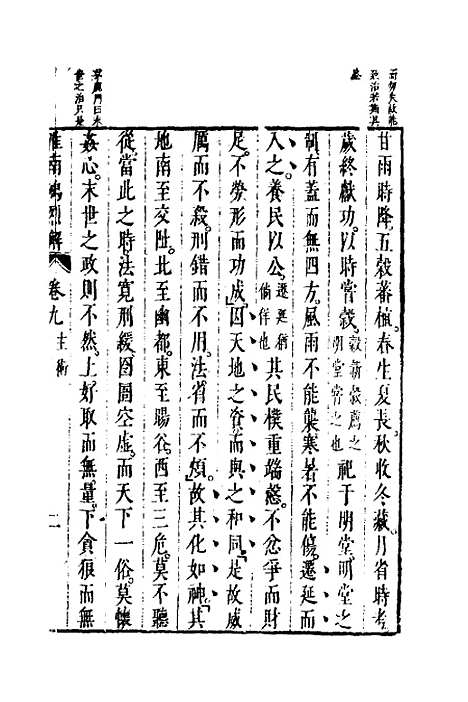 甘雨時降五穀蕃植春生夏長秋收冬藏月省時考
歲終獻功以時嘗穀穀新穀薦之明堂嘗之也祀于明堂明堂之
制有蓋而無四方風雨不能襲寒暑不能傷遷延而
入之養民以公遷延猶倘佯也其民樸重端慤不忿爭而財
足不勞形而功成因天地之資而與之和同是故威
厲而不殺刑錯而不用法省而不煩故其化如神其
地南至交阯北至幽都東至暘谷西至三危莫不聽
從當此之時法寬刑緩囹圄空虛而天下一俗莫懷
姦心末世之政則不然上好取而無量下貪狼而無
淮南鴻烈解 卷九主術 二